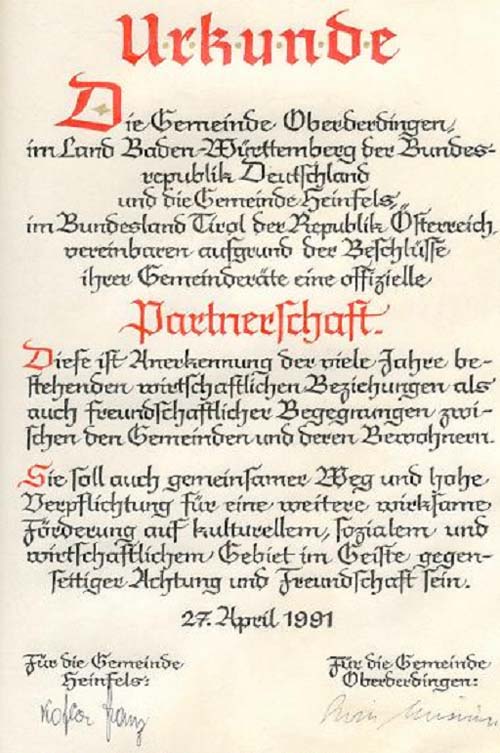 Urkunde
Die Gemeinde Oberderdingen,
im Land Baden-Württemberg der Bundes-
republik Deutschland
und die Gemeinde Heinfels,
im Bundesland Tirol der Republik Österreich,
vereinbaren aufgrund der Beschlüsse
ihrer Gemeinderäte eine offizielle
Partnerschaft.
Diese ist Anerkennung der viele Jahre be-
stehenden wirtschaftlichen Beziehungen als
auch freundschaftlicher Begegnungen zwi-
schen den Gemeinden und deren Bewohnern.
Sie soll auch gemeinsamer Weg und hohe
Verpflichtung für eine weitere wirksame
Förderung auf kulturellem, sozialem und
wirtschaftlichem Gebiet im Geiste gegen-
seitiger Achtung und Freundschaft sein.
27. April 1991
Für die Gemeinde
Heinfels:
Kofler Franz
Für die Gemeinde
Oberderdingen: